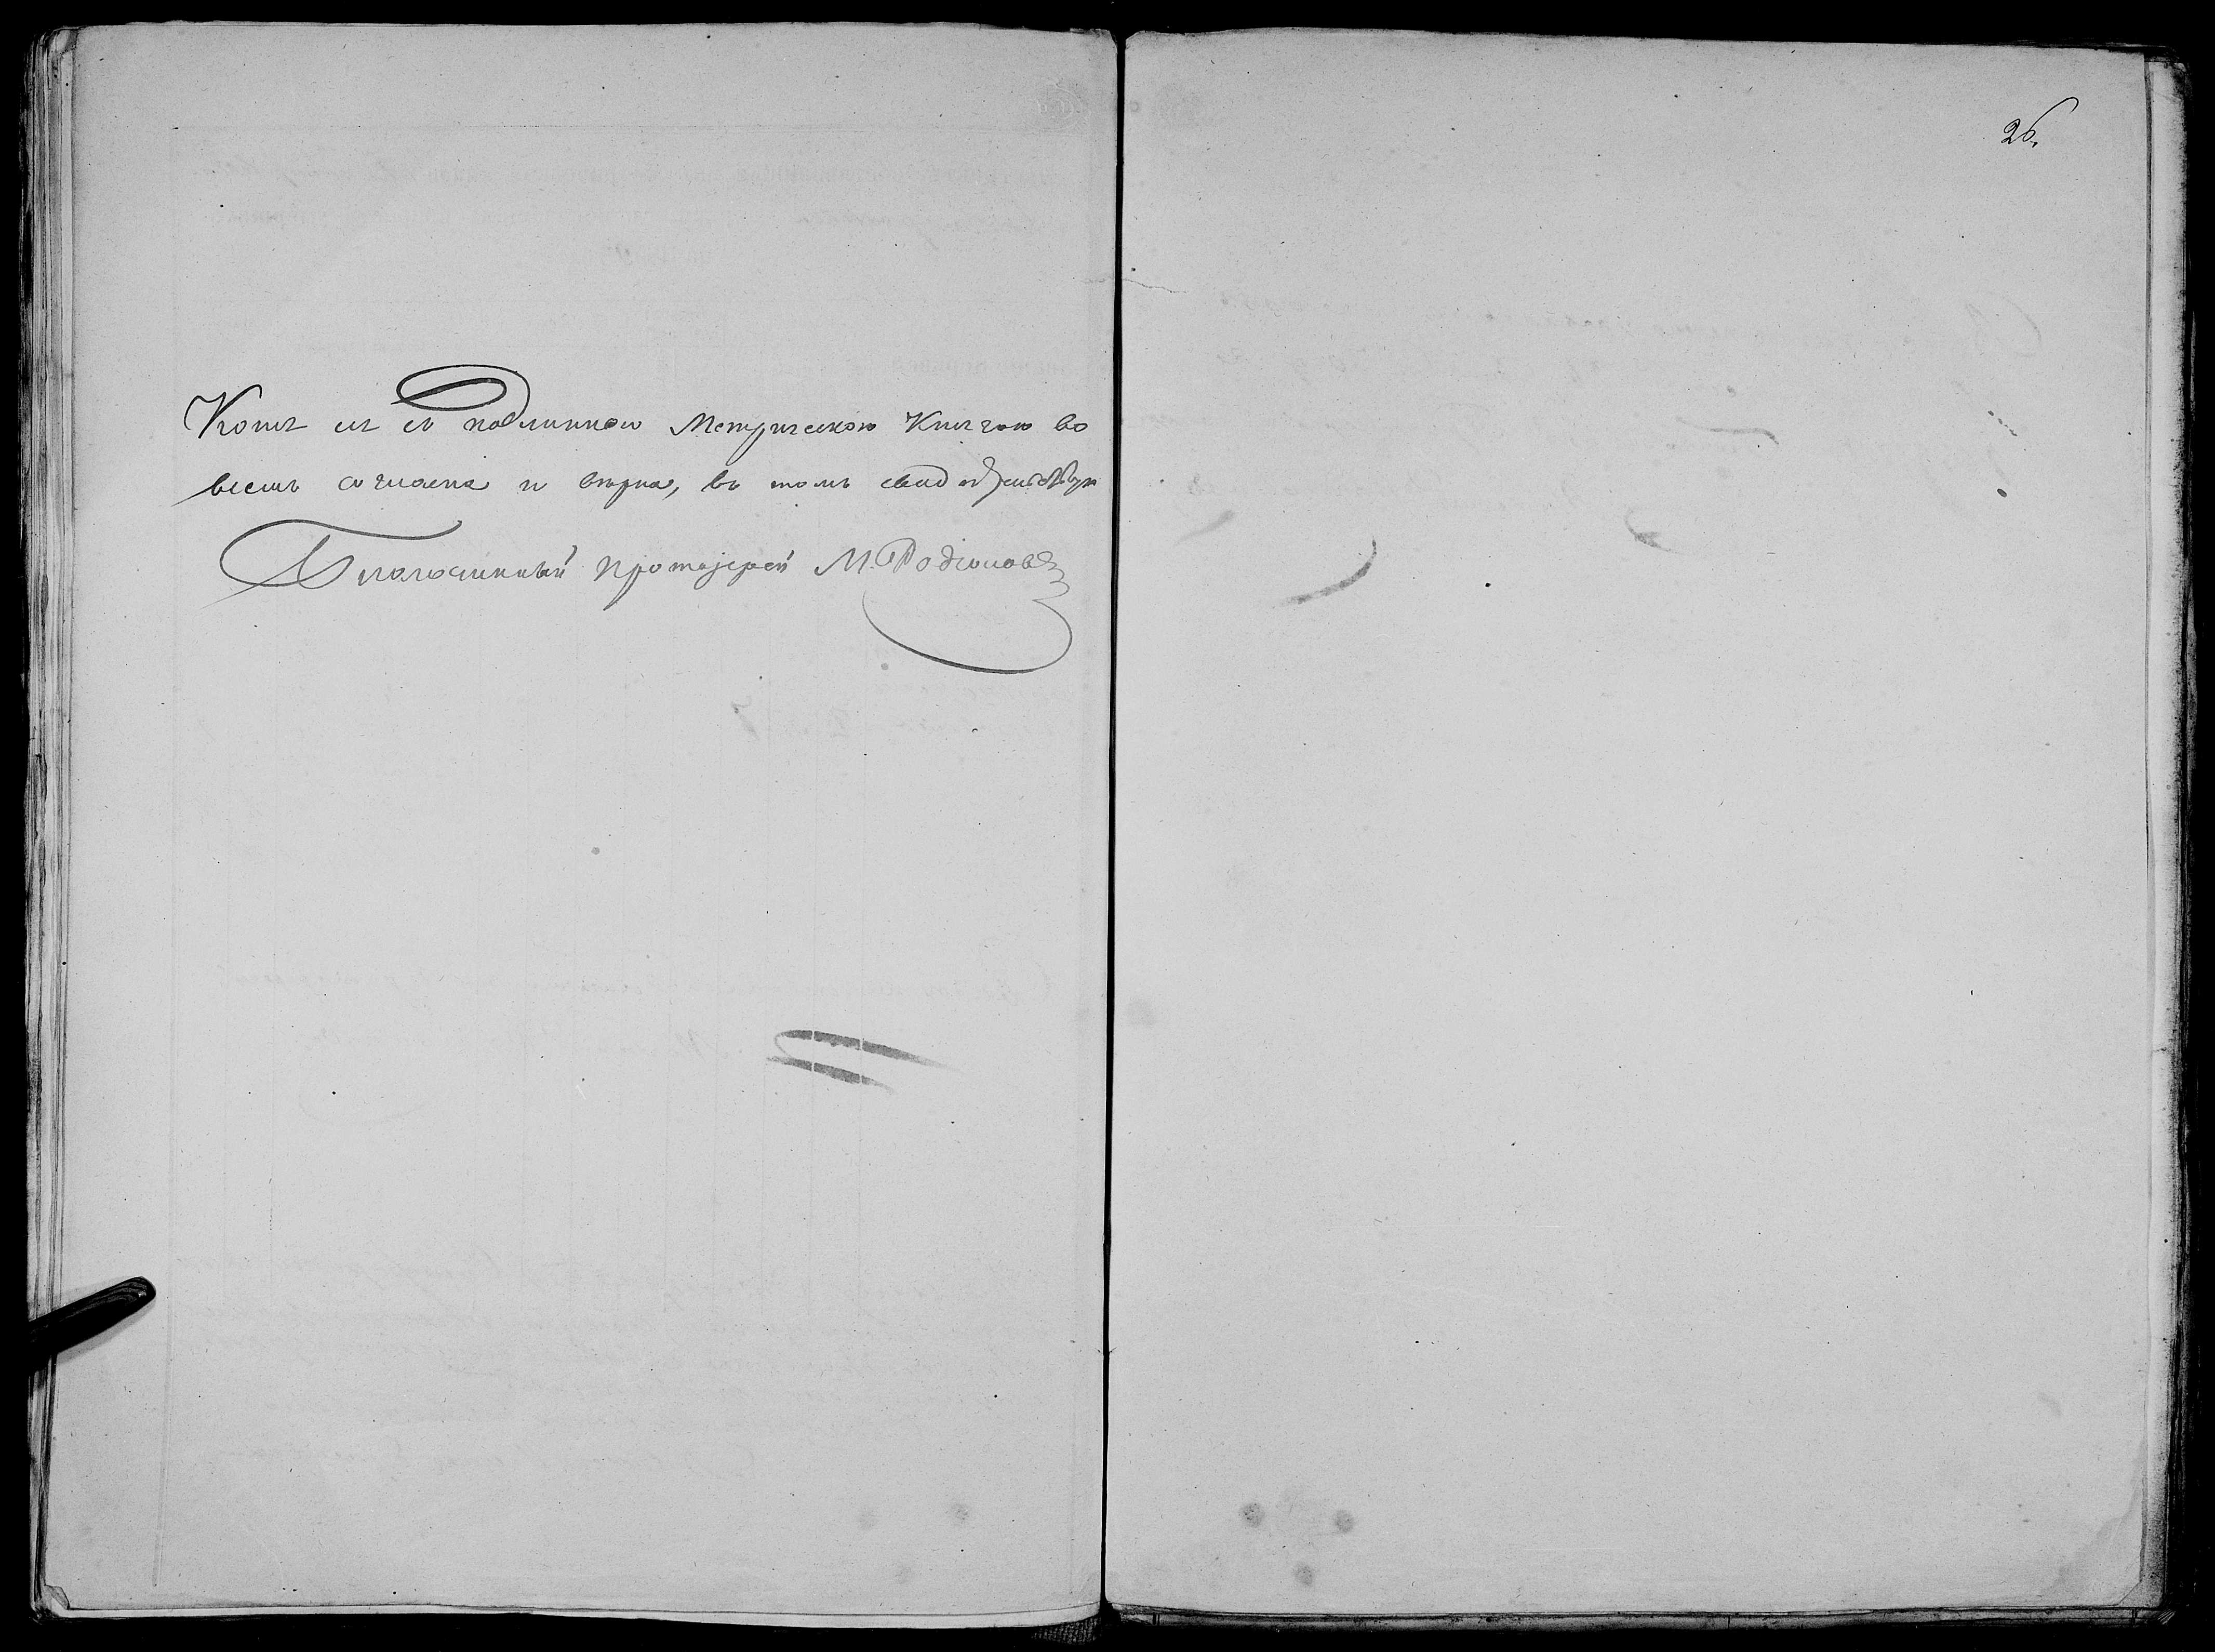 26.
Копія сія съ подлинною Метрическою Книгою во
всемъ согласна и вѣрна, въ томъ свидѣтельствую
Благочинный протоіерей М. Родіоновъ